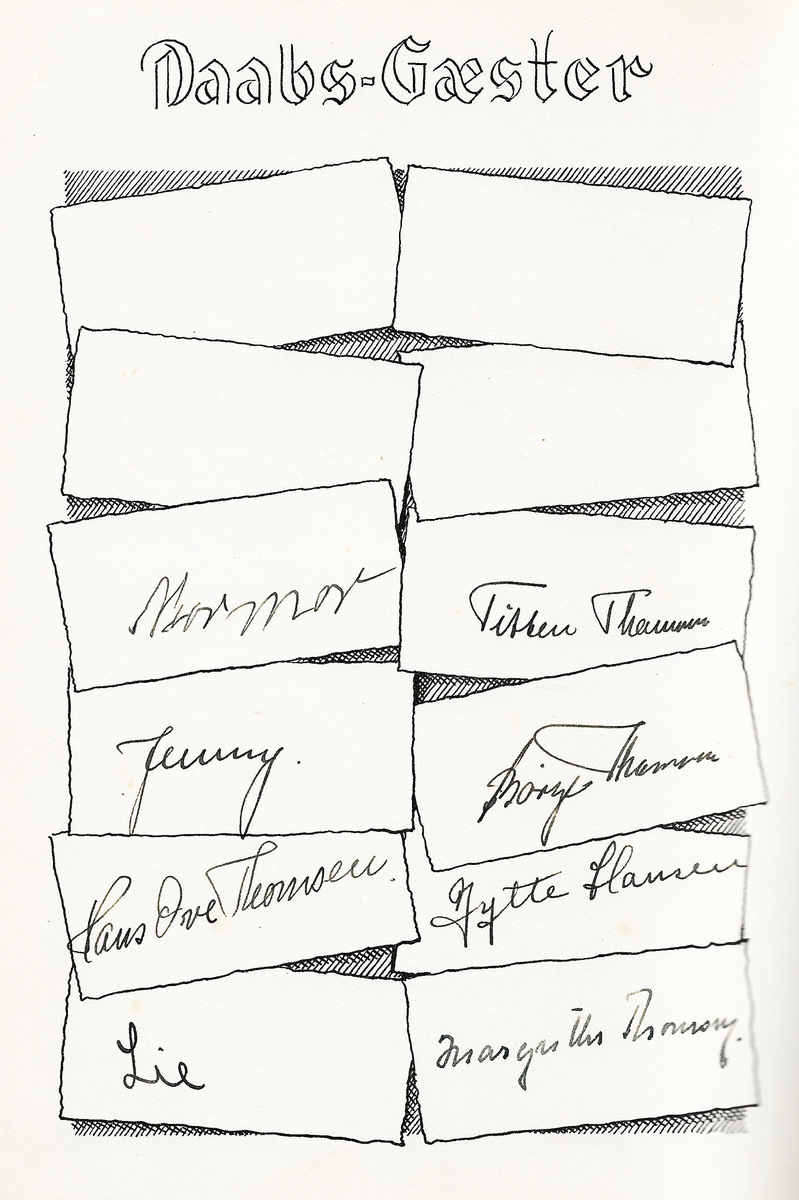 Daabs-Gæster
Mormor
Titten Thomsen
Jenny.
Börge Thomsen
Hans Ove Thomsen.
Jytte Hansen
Lie
Margrethe Thomsen.